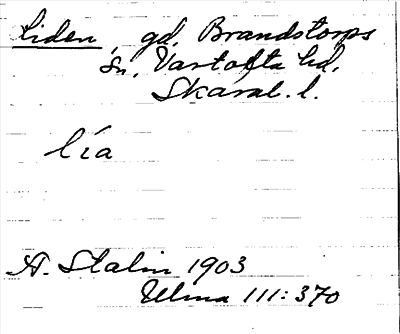 Liden, gd. Brandstorps
sn, Vartofta hd,
Skarab. l.
lía
A. Stalin 1903
Ulma 111:370